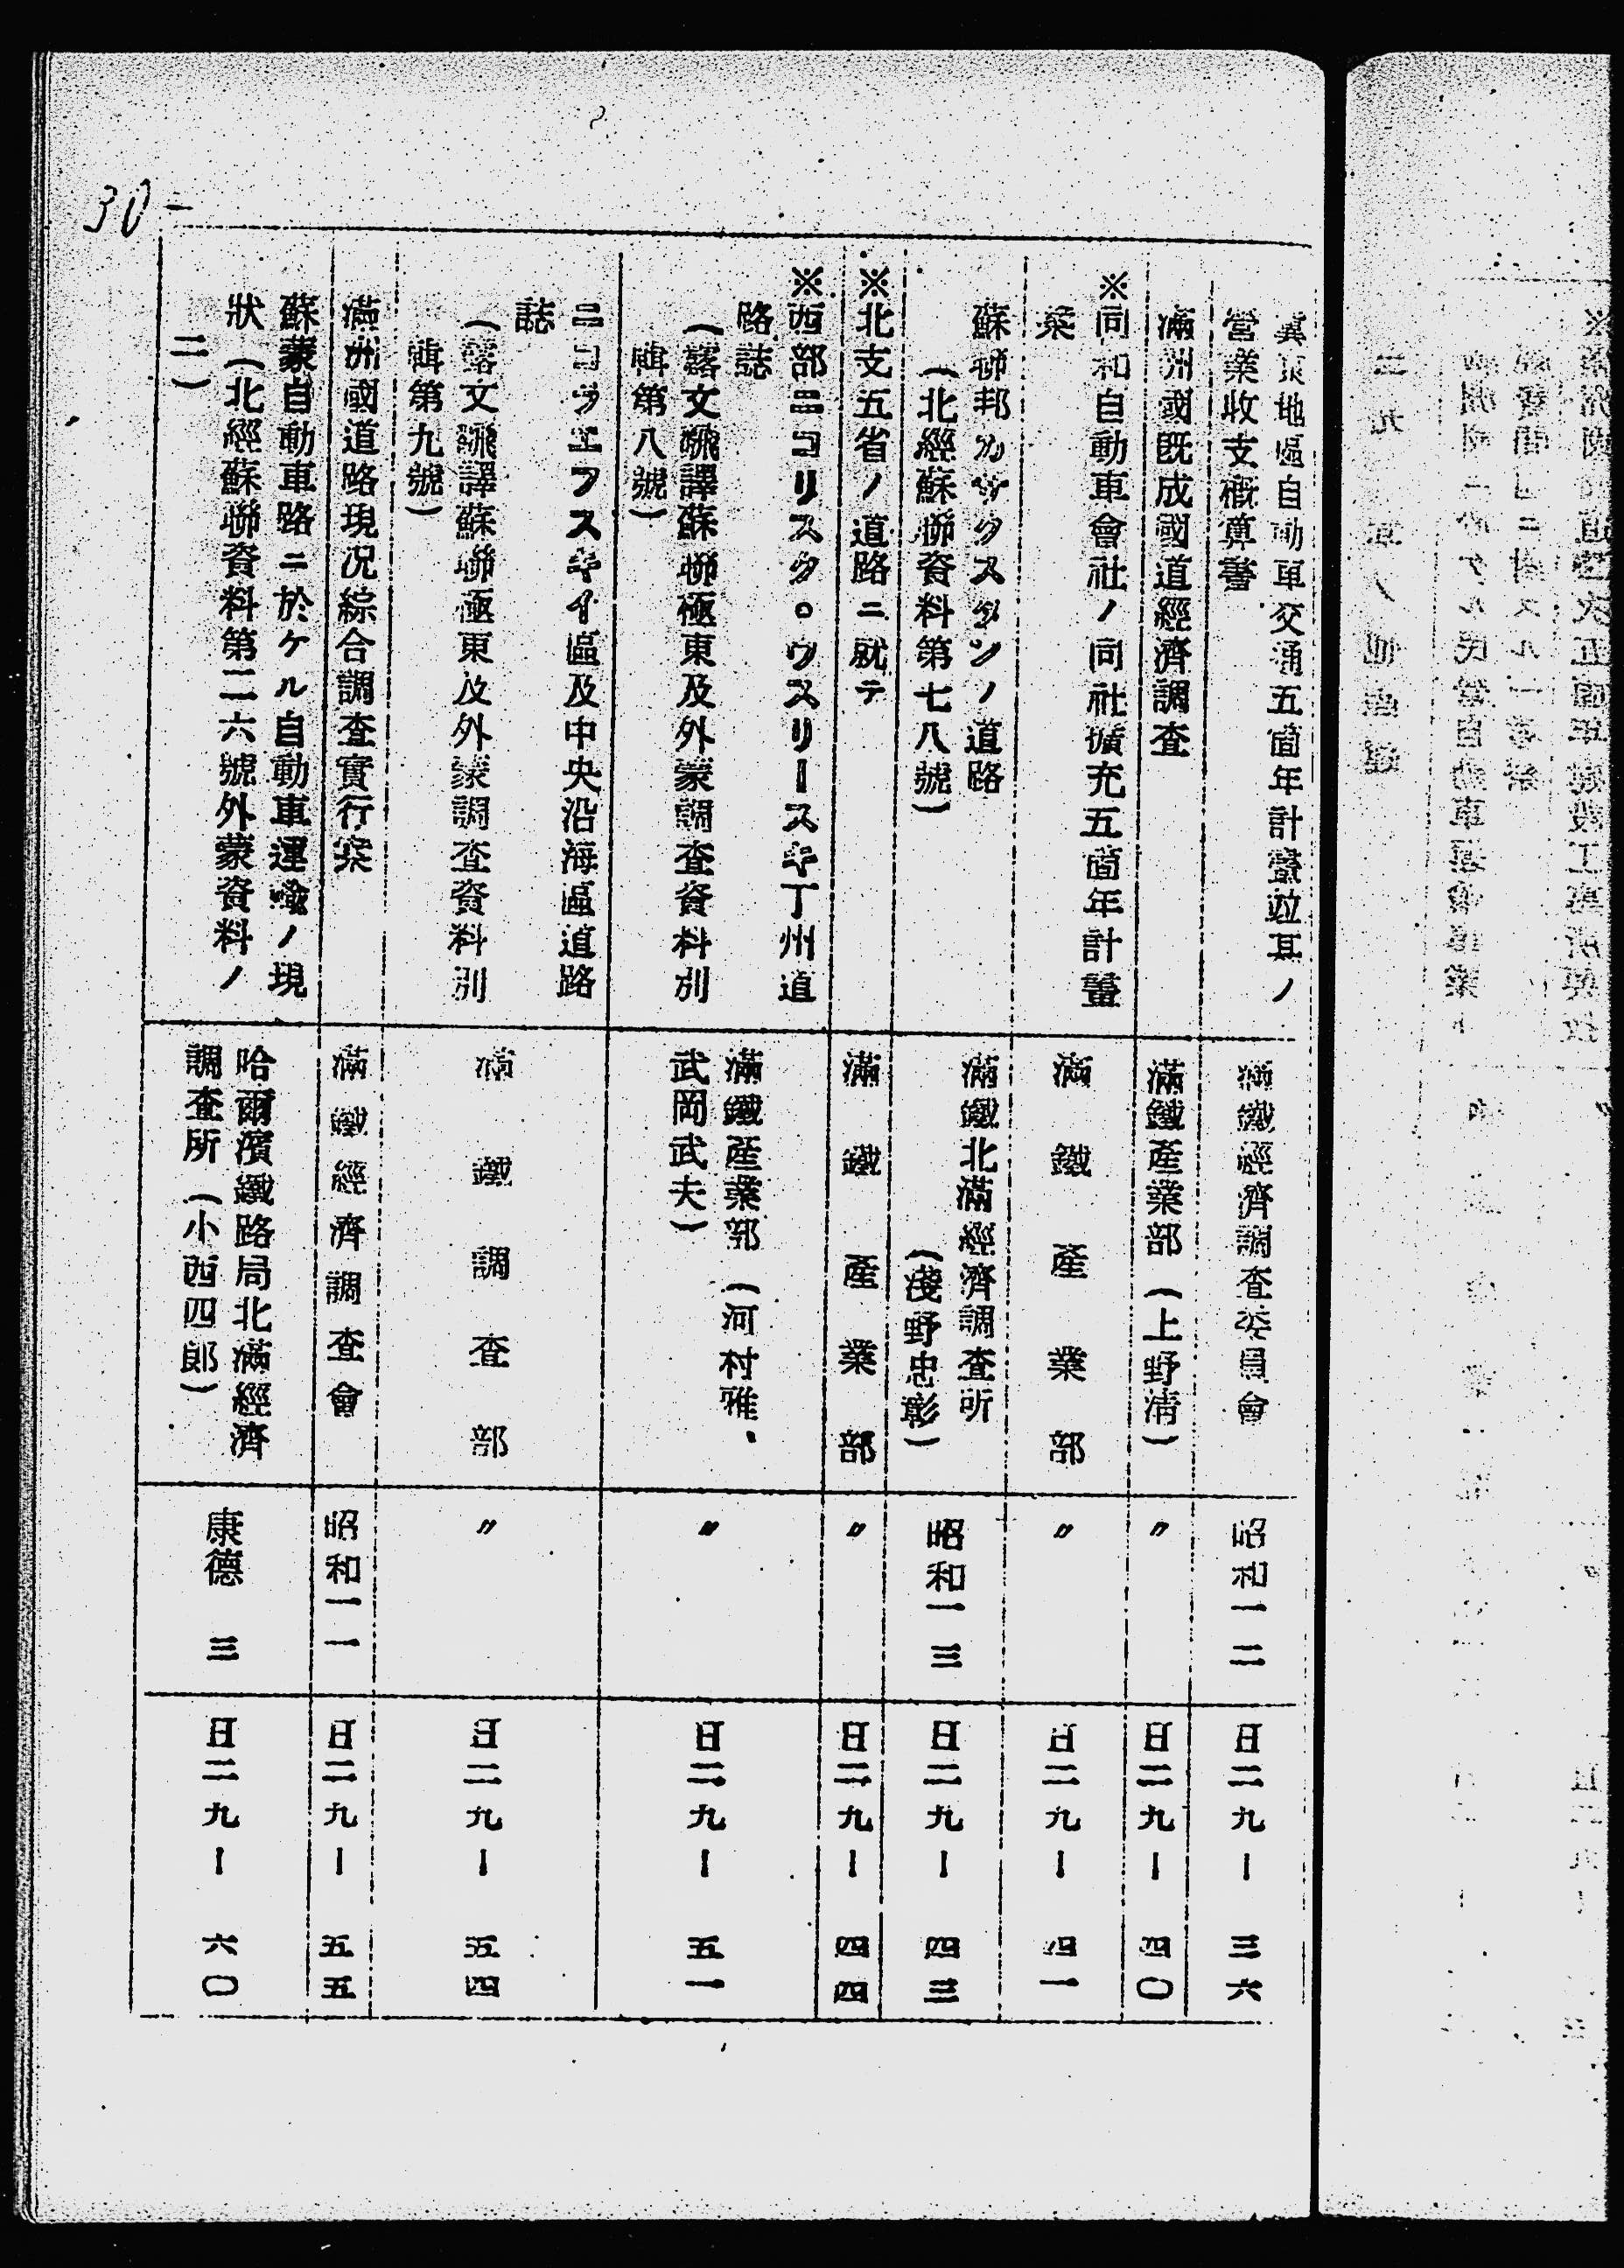 30-
冀東地區自動車交通五箇年計畫竝其ノ
營業收支概算書
滿鐵經濟調査委員會
昭和一二
日二九ー三六
滿州國既成國道經濟調査
滿鐵產業部(上野清)
〃
日二九ー四〇
※同和自動車會社ノ同社擴充五箇年計畫
案
滿鐵產業部
〃
日二九ー四一
蘇聯邦カザクスタンノ道路
(北經蘇聯資料第七八號)
滿鐵北滿經濟調査所
(淺野忠彰)
昭和一三
日二九ー四三
※北支五省ノ道路ニ就テ
滿鐵產業部
〃
日二九ー四四
※西部ニコリスク。ウスリースキ丁州道
路誌
(露文飜譯蘇聯極東及外蒙調査資料別
輯第八號)
滿鐵產業部(河村雅、
武岡武夫)
〃
日二九ー五一
ニコラエフスキイ區及中央沿海區道路
誌
(露文飜譯蘇聯極東及外蒙調査資料別
輯第九號)
滿鐵調査部
〃
日二九ー五四
滿洲國道路現況綜合調査實行案
滿鐵經濟調査會
昭和一一
日二九ー五五
蘇蒙自動車路ニ於ケル自動車運輸ノ現
狀(北經蘇聯資料第二六號外蒙資料ノ
二)
哈爾濱鐵路局北滿經濟
調査所(小西四郎)
康德三
日二九ー六〇